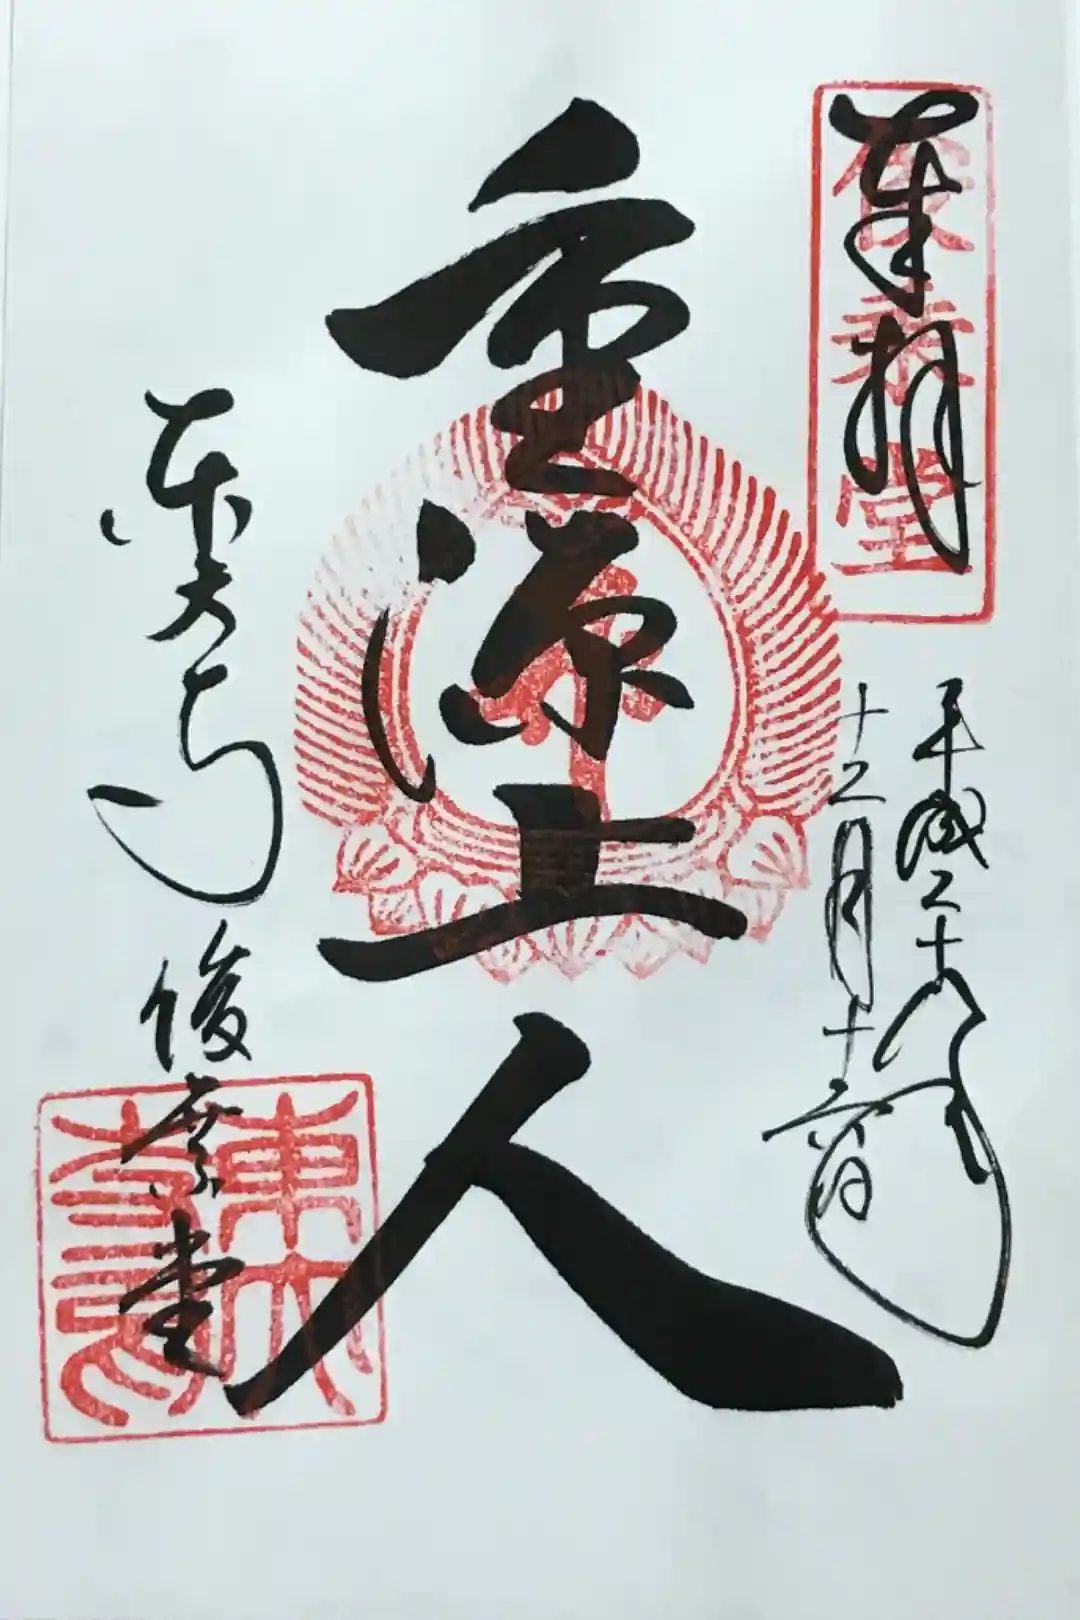 奉拝
俊乗堂
平成二十八年
十二月十六日
重源上人
東大寺
俊乗堂
東大
寺印